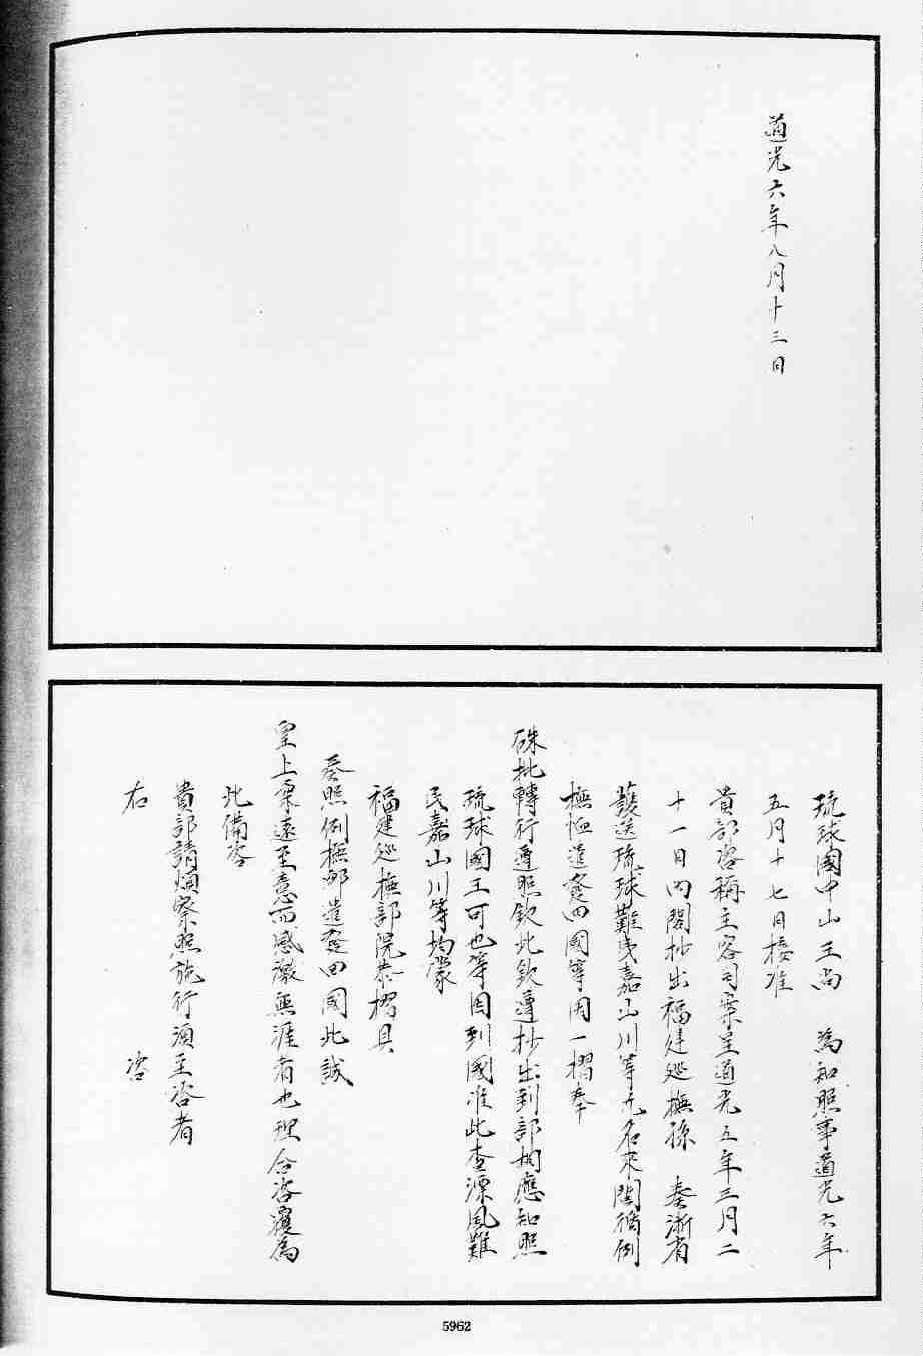 道光六年八月十三日
琉球國中山王尚　為知照事道光六年
五月十七日接准
貴部咨稱主客司案呈道光五年三月二
十一日內閣抄出福建巡撫孫　奏浙省
護送琉球難夷嘉山川等九名來閩循例
撫恤遣發回國等因一摺奉
硃批轉行遵照欽此欽遵抄出到部相應知照
琉球國王可也等因到國准此查漂風難
民嘉山川等均蒙
福建巡撫部院恭摺具
奏照例撫卹遣發回國此誠
皇上柔遠至意而感激無涯者也理合咨覆為
此備咨
貴部請煩察照施行須至咨者
右　咨
5962